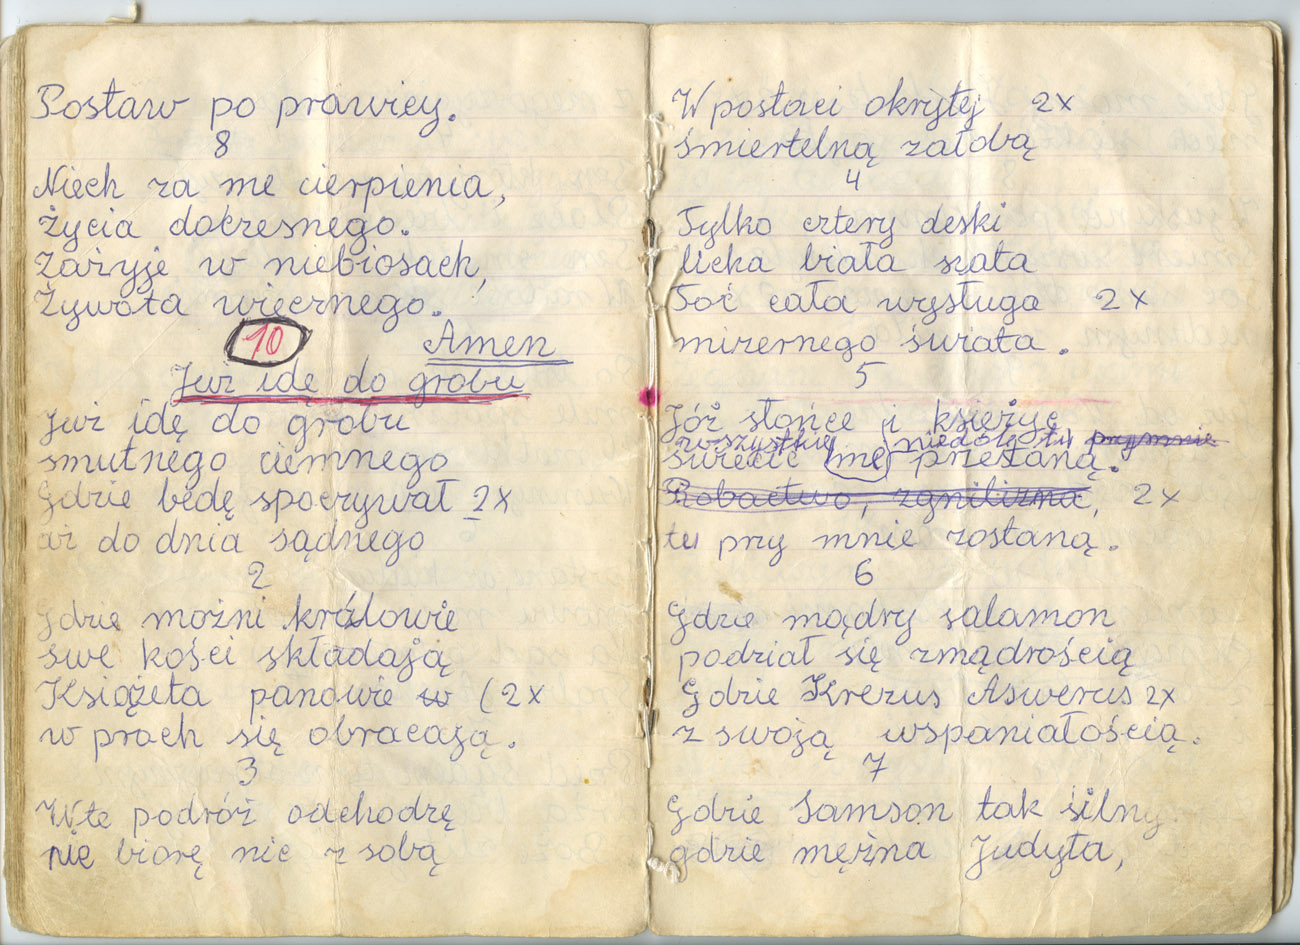 Postaw po prawicy.
8
Niech za me cierpienia,
Życia doczesnego.
Zażyje w niebiosach,
Żywota wiecznego.
10
Amen
Już idę do grobu
Już idę do grobu
smutnego ciemnego
Gdzie bedę spoczywał 2x
aż do dnia sądnego
2
Gdzie możni królowie
swe kości składają
Książeta panowie w (2x
w proch się obracają.
3
W te podróż odchodzę
nie biorę nic z sobą
W postaci okrytej 2x
śmiertelną załobą
4
Tylko cztery deski
licha biała szata
Toć cała wysługa 2x
mizernego świata.
5
Jóż słońce i księżyc
wszystkie niedole tu przymnie
świecić me przestaną.
Robactwo, zgnilizna, 2x
tu przy mnie zostaną.
6
Gdzie mądry salamon
podział się zmądrością
Gdzie Krezus Aswerus 2x
z swoją wspaniałością.
7
Gdzie Samson tak silny
gdzie mężna Judyta,